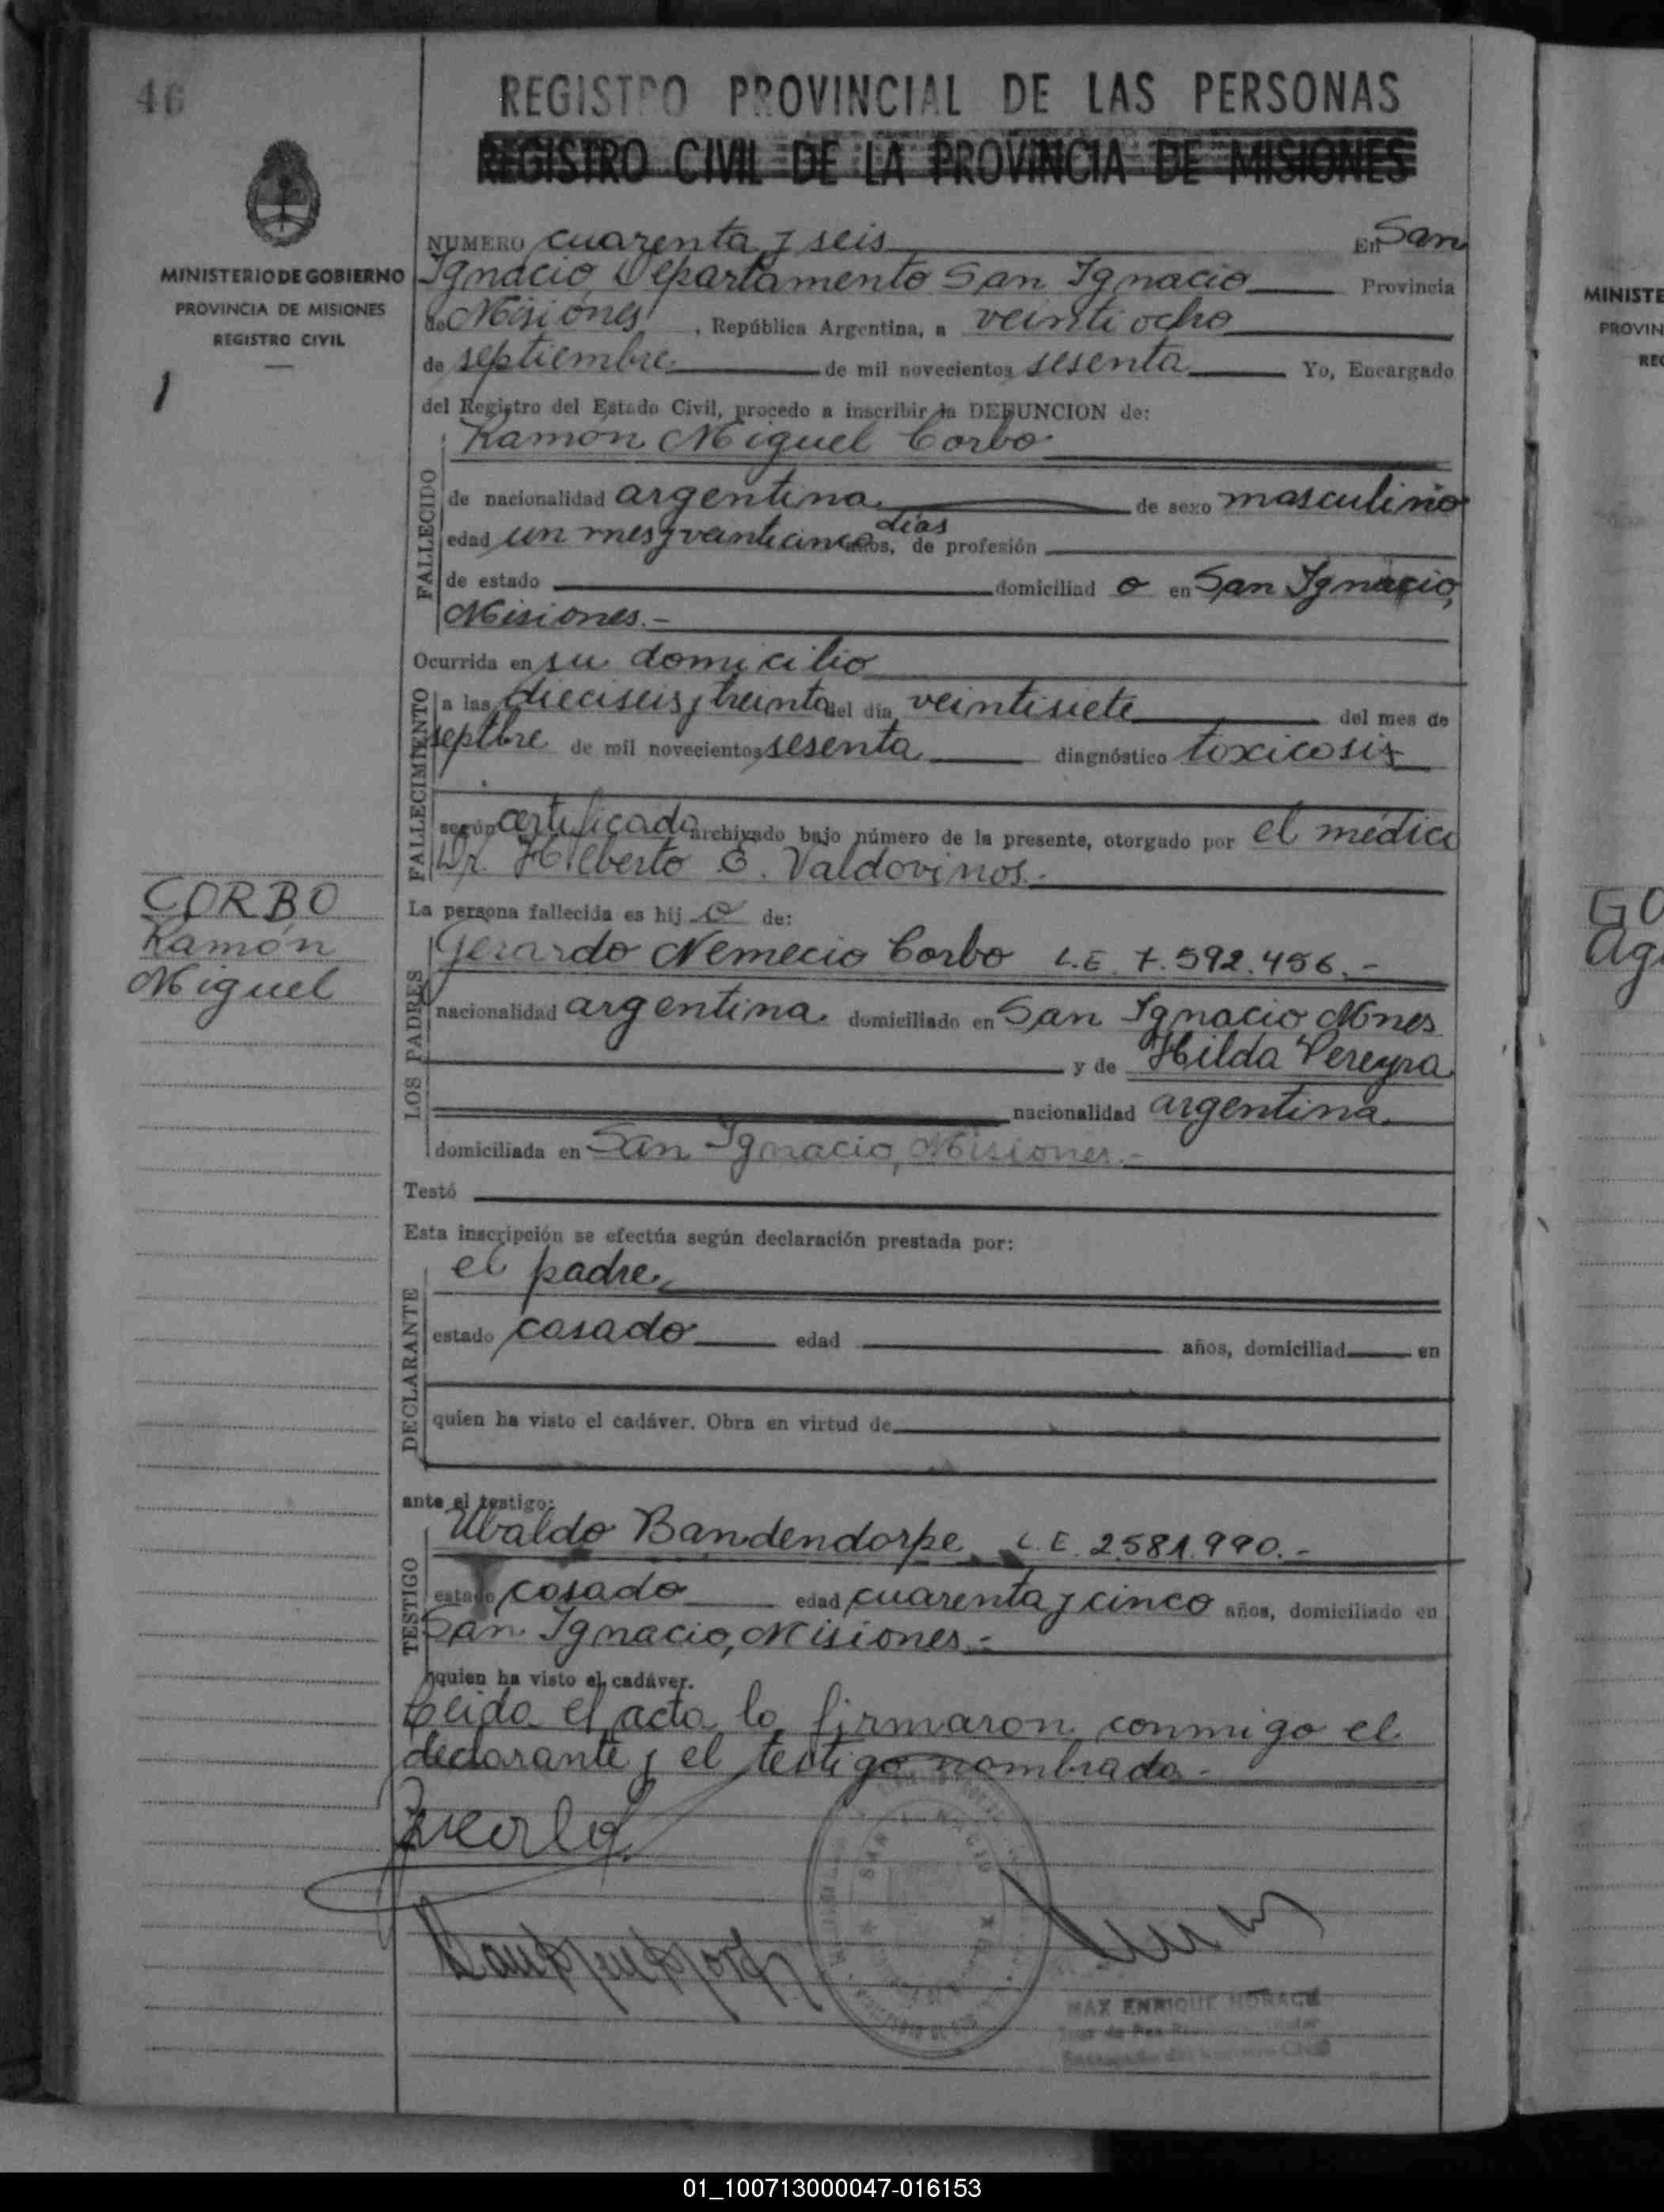 46
REGISTRO PROVINCIAL DE LAS PERSONAS
REGISTRO CIVIL DE LA PROVINCIA DE MISIONES
MINISTERIO DE GOBIERNO
PROVINCIA DE MISIONES
REGISTRO CIVIL
1
NUMERO cuarenta y seis En San
Ignacio, Departamento San Ignacio Provincia
de Misiones, República Argentina, a veintiocho
de septiembre de mil novecientos sesenta Yo, Encargado
del Registro del Estado Civil, procedo a inscribir la DEFUNCION de:
Ramón Miguel Corbo
FALLECIDO
de nacionalidad argentina de sexo masculino
edad un mes y veinticinco días años, de profesión
de estado domiciliad o en San Ignacio,
Misiones.-
Ocurrida en su domicilio
FALLECIMIENTO
a las dieciseis y treinta del día veintisiete del mes de
septbre de mil novecientos sesenta diagnóstico toxicosis
según certificado archivado bajo número de la presente, otorgado por el médico
Dr. Hilberto E. Valdovinos.-
CORBO
Ramón
Miguel
La persona fallecida es hij o de:
LOS PADRES
Gerardo Nemecio Corbo L.E. 7.592.456.-
nacionalidad argentina domiciliado en San Ignacio Mnes
y de Hilda Pereyra
nacionalidad argentina
domiciliada en San Ignacio, Misiones.-
Testó
Esta inscripción se efectúa según declaración prestada por:
DECLARANTE
el padre
estado casado edad años, domiciliad en
quien ha visto el cadáver. Obra en virtud de
ante el testigo:
TESTIGO
Ubaldo Bandendorpe L.E. 2.581.990.-
estado casado edad cuarenta y cinco años, domiciliado en
San Ignacio, Misiones.-
quien ha visto el cadáver.
Leida el acta la firmaron conmigo el
declarante y el testigo nombrado.-
MAX ENRIQUE MORACE
MINISTE
PROVIN
REG
GO
Ag
01_100713000047-016153